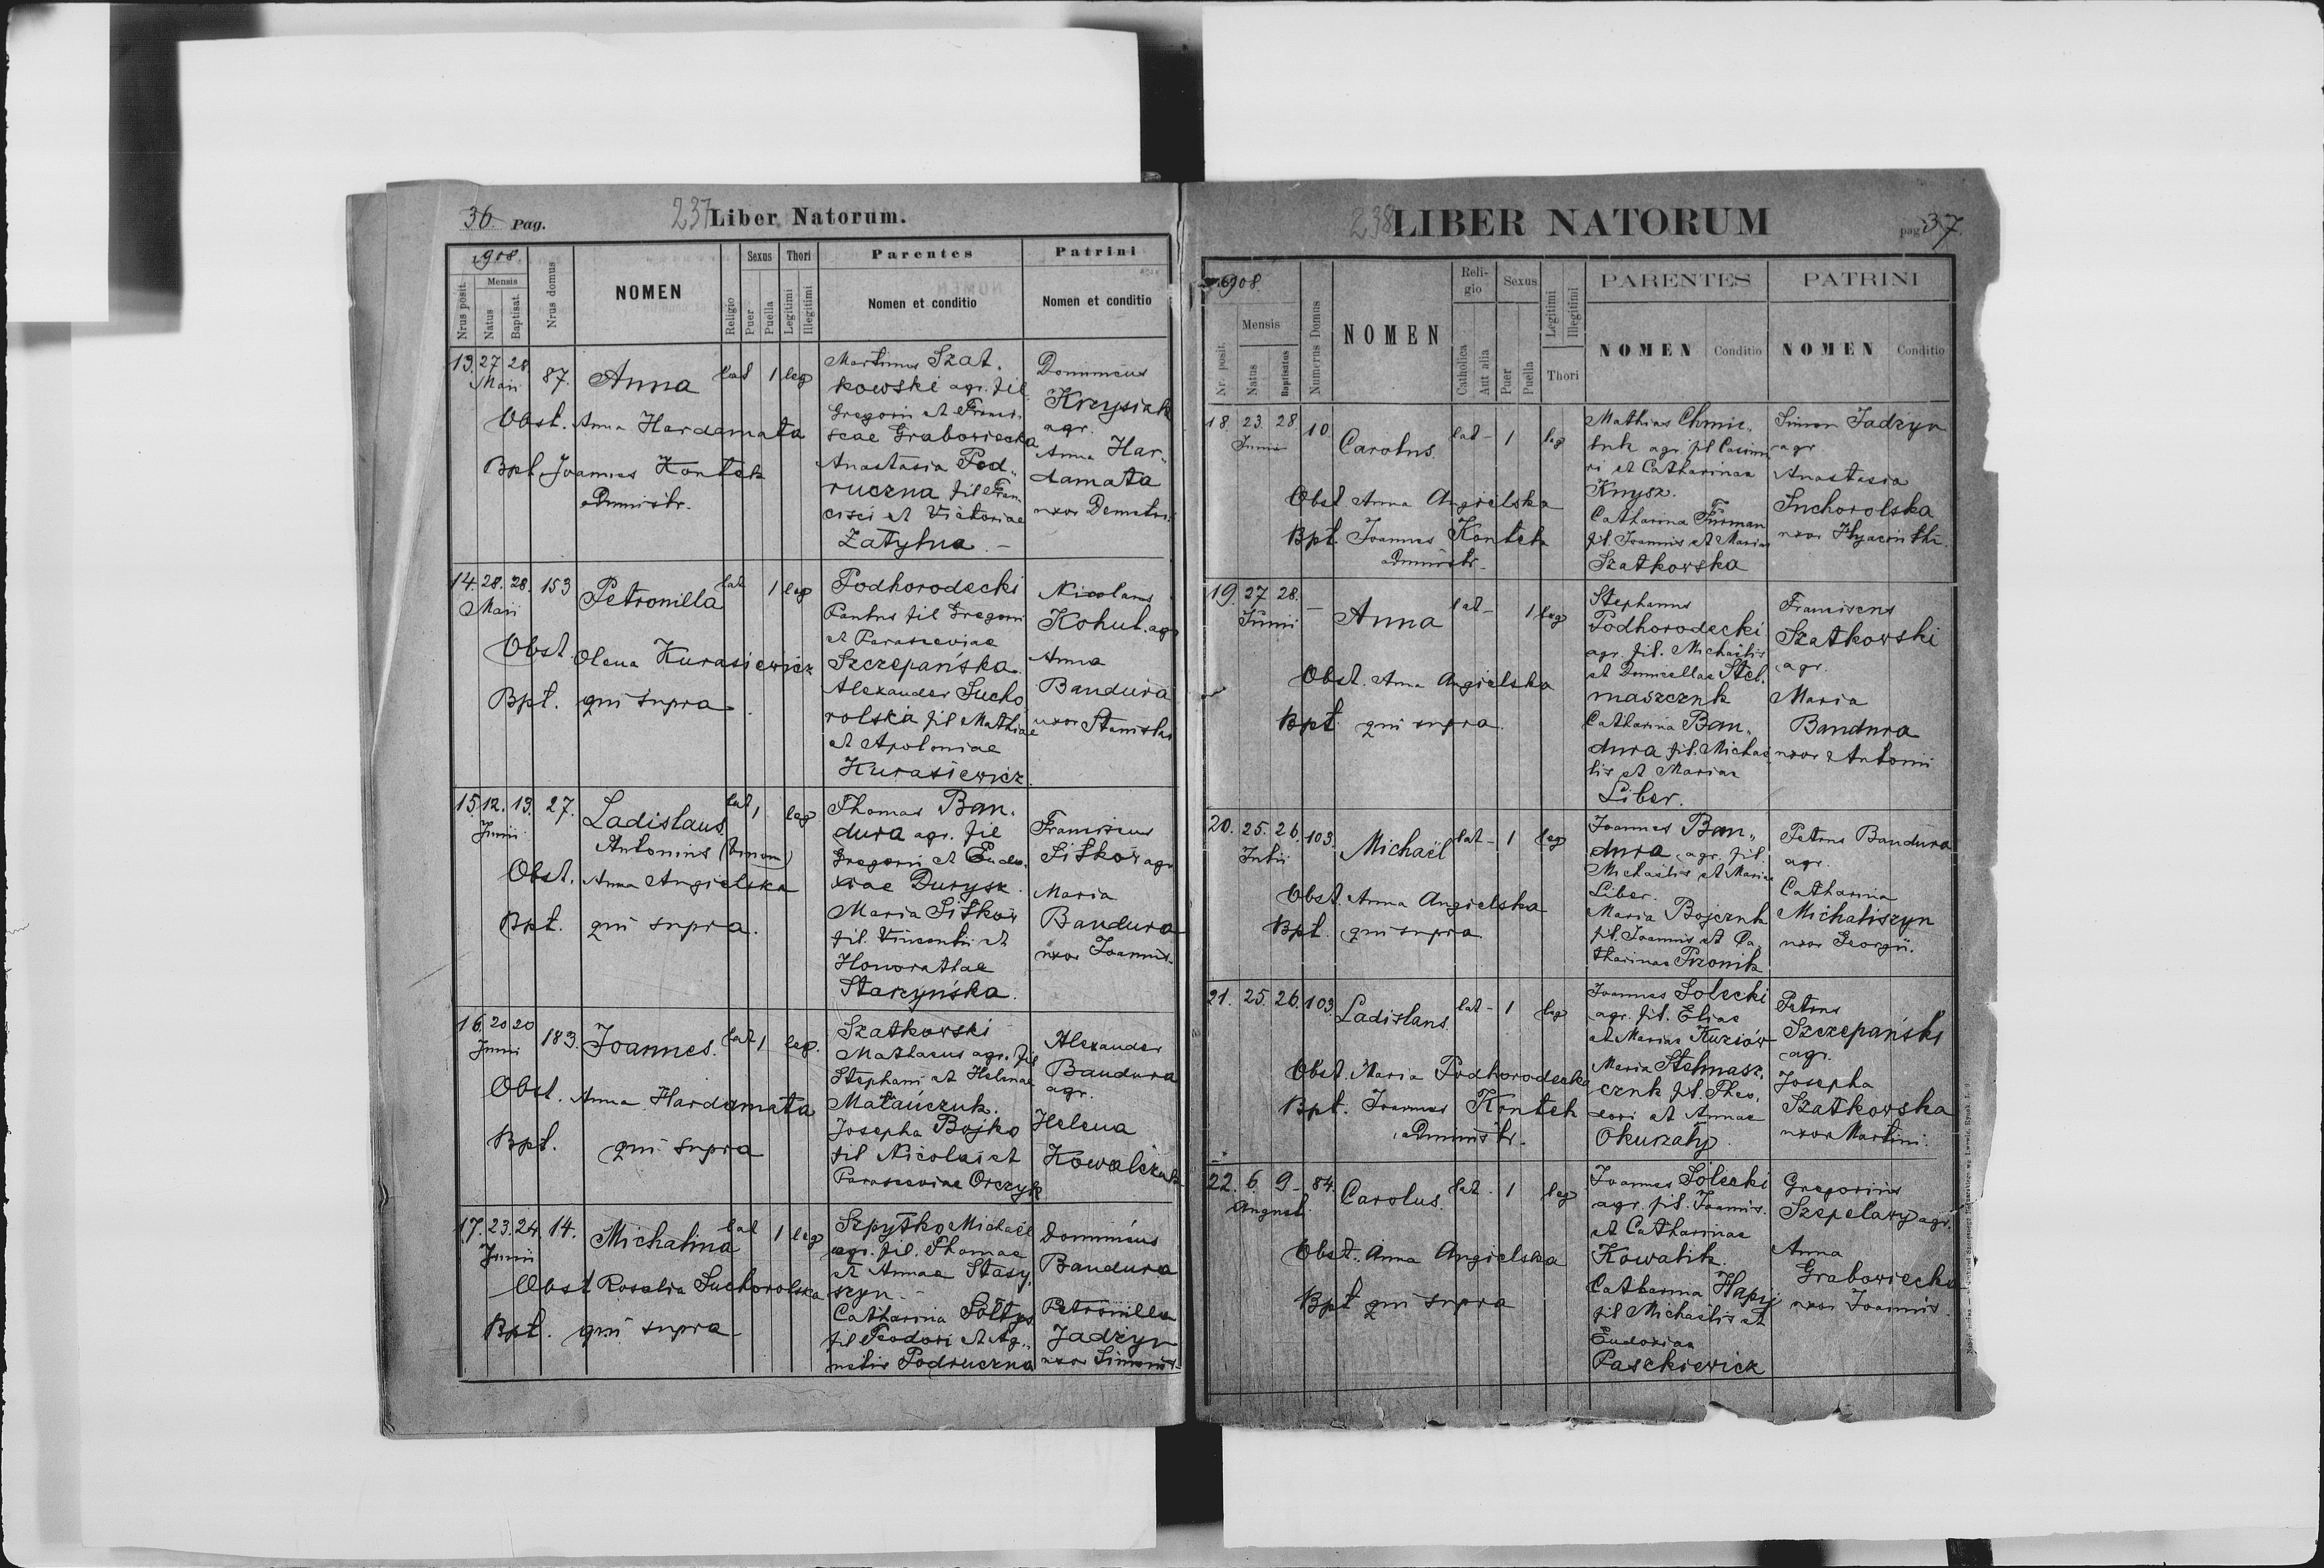 36 Pag.
237
Liber Natorum.
1908.
Nrus posit.
Mensis
Natus
Baptisat.
Nrus domus
NOMEN
Religio
Sexus
Puer
Puella
Thori
Legitimi
Illegitimi
Parentes
Nomen et conditio
Patrini
Nomen et conditio
13. 27 28 87. Anna lat 1 leg
Maii
Obst. Anna Hardamata
Bpt. Joannes Kontek
administr.
Martinus Szat-
kowski agr. fil.
Gregorii et Franci-
scae Grabowiecka
Anastasia Pod-
ruczna fil Fran
cisci et Victoriae
Zatylna. –
Dominicus
Krzysiak
agr.
Anna Har-
damata
uxor Demetrii
14. 28. 28. 153 Petronilla lat 1 leg
Maii
Obst. Olena Kurasiewicz
Bpt. qui supra
Podhorodecki
Paulus fil Gregorii
et Parasceviae
Szczepańska
Alexander Sucho
rolska fil Mathiae
et Apoloniae
Kurasiewicz
Nicolaus
Kohut agr
Anna
Bandura
uxor Stanislai
15. 12. 13. 27. Ladislaus lat 1 leg
Junii
Antonius (binom)
Obst. Anna Angielska
Bpt. qui supra.
Thomas Ban-
dura agr. fil
Gregorii et Eudo-
xiae Durysz.
Maria Sitków
fil. Vincentii et
Honorathae
Starzyńska.
Franciscus
Sitków agr
Maria
Bandura
uxor Joannis.
16. 20 20 183. Joannes. lat 1 leg.
Junii
Obst. Anna Hardamata
Bpt. qui supra
Szatkowski
Mathaeus agr. fil
Stephani et Helenae
Matańczuk.
Josepha Bojko
fil Nicolai et
Parasceviae Orczyk
Alexander
Bandura
agr.
Helena
Kowalczuk
17. 23. 24. 14. Michalina lat 1 leg
Junii
Obst Rosalia Suchorolska
Bpt. qui supra
Szpytko Michael
agr. fil. Thomae
et Annae Stasy
szyn. –
Catharina Sołtys
fil Teodori et Ag-
netis Podruczna
Dominicus
Bandura
Petronilla
Jadzyn
uxor Simonis
238
LIBER NATORUM
pag 37.
1908
Nr. posit.
Mensis
Natus
Baptisatus
Numerus Domus
NOMEN
Religio
Catholica
Aut alia
Sexus
Puer
Puella
Legitimi
Illegitimi
Thori
PARENTES
NOMEN
Conditio
PATRINI
NOMEN
Conditio
18. 23. 28 10. Carolus lat – 1 leg
Junii
Obst Anna Angielska
Bpt. Joannes Kontek
administr.
Mathias Chmie-
luk agr. fil Casimi
ri et Catharinae
Knysz.
Catharina Furman
fil Joannis et Mariae
Szatkowska
Simon Jadzyn
agr
Anastasia
Suchorolska
uxor Hyacinthi.
19. 27 28. – Anna lat – 1 leg
Junii
Obst. Anna Angielska
Bpt qui supra.
Stephanus
Podhorodecki
agr. fil. Michaelis
et Domicellae Stel-
maszczuk
Catharina Ban-
dura fil. Michae
lis et Mariae
Liber.
Franciscus
Szatkowski
agr.
Maria
Bandura
uxor Antonii
20. 25. 26. 103. Michaël lat – 1 leg
Julii
Obst. Anna Angielska
Bpt. qui supra
Joannes Ban-
dura agr. fil.
Michaelis et Mariae
Liber.
Maria Bojczuk
fil. Joannis et Ca
tharinae Pronik
Petrus Bandura
agr.
Catharina
Michaliszyn
uxor Georgii.
21. 25. 26. 103. Ladislaus lat – 1 leg
Obst. Maria Podhorodecka
Bpt. Joannes Kontek
administr.
Joannes Solecki
agr. fil. Eliae
et Mariae Kuziów
Maria Stelmasz-
czuk fil. Theo-
dori et Annae
Okurzaty.
Petrus
Szczepański
agr.
Josepha
Szatkowska
uxor Martini.
22. 6. 9 – 84. Carolus. lat – 1 leg
August.
Obst. Anna Angielska
Bpt qui supra
Joannes Solecki
agr. fil. Joannis.
et Catharinae
Kowalik.
Catharina Hapij
fil Michaelis et
Eudoxiae
Paszkiewicz
Gregorius
Szepelawy agr.
Anna
Grabowiecka
uxor Joannis.